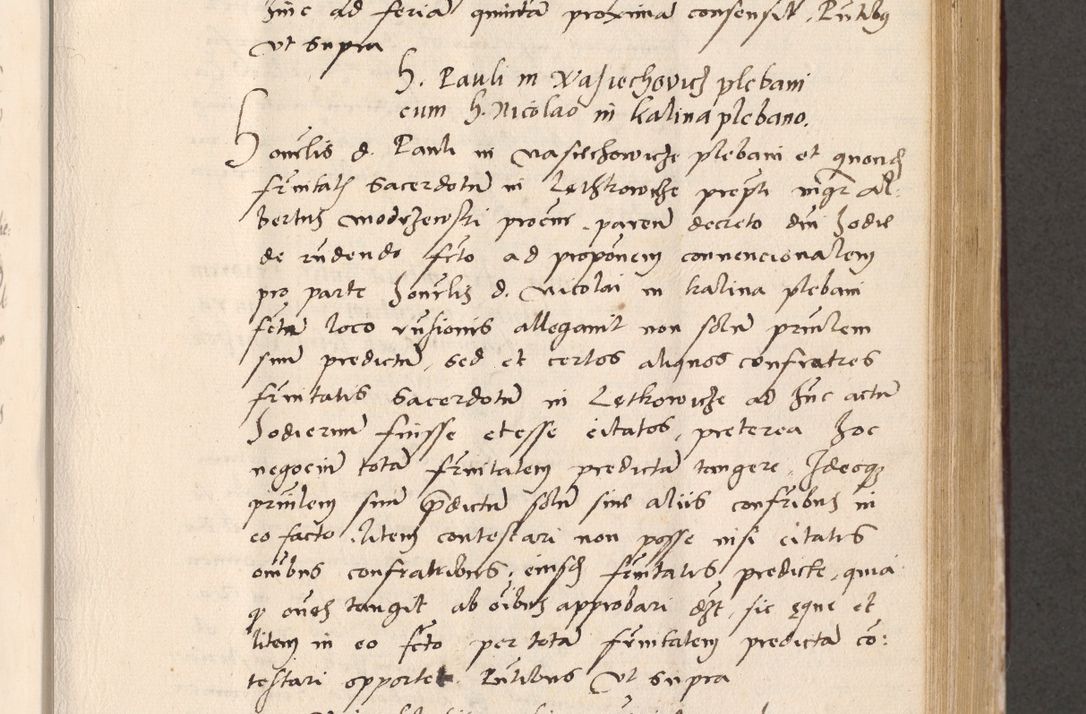 hinc ad feriam quintam proximam consensit. Pntibus
vt supra
H. Pauli in Wasiechovicz plebani
cum H. Nicolao in Kalina plebano.
Honrlis d. Pauli in Wasiechowicze plebani et
frnitatis Sacerdotum in Lethkowicze prepti mgr Al-
bertus Modrzewski procur. parens decreto dni hodie
de rndendo fcto ad proponem convencionalem
pro parte honrlis d. Nicolai in Kalina plebani
fctam loco rnsionis allegavit non solum prnlem
suum predictum, sed et certos aliquos confratres
frnitatis Sacerdotum in Letkowicze ad hunc actum
hodiernum fuisse et esse citatos, preterea hoc
negocium totam frnitatem predictam tangere. Ideoque
prnlem suum predictum solum sine aliis confribus in
eo facto litem contestari non posse nisi citatis
omibus confratribus, eiusdem frnitatis predicte, quia
q omnes tangit ab oibus approbari det, sic eque et
litem in eo fcto per totam frnitatem predictam con-
testari opportet. Pntibus vt supra